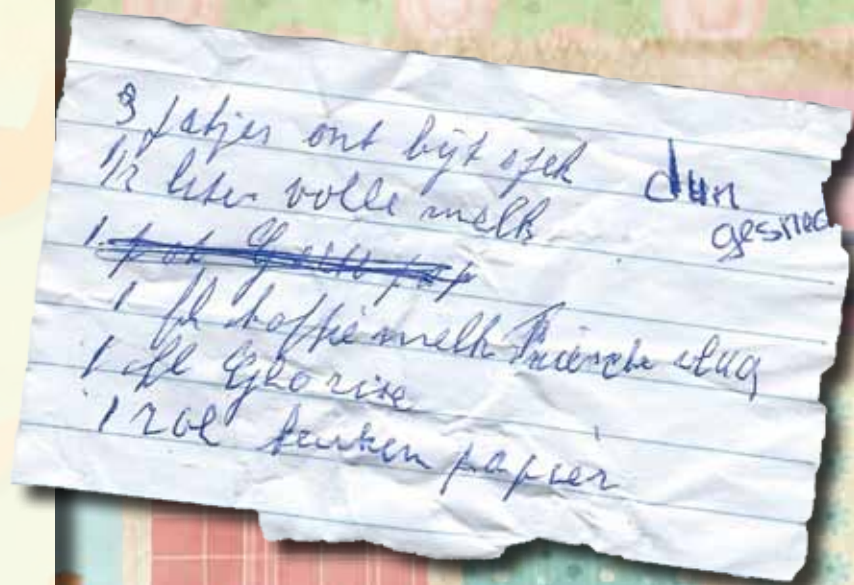 3 pakjes ont bijt spek dun
gesned
1/2 liter volle melk
1 pot
1 fl koffiemelk Friesche vlag
1 fl Glorix
1 rol keuken papier